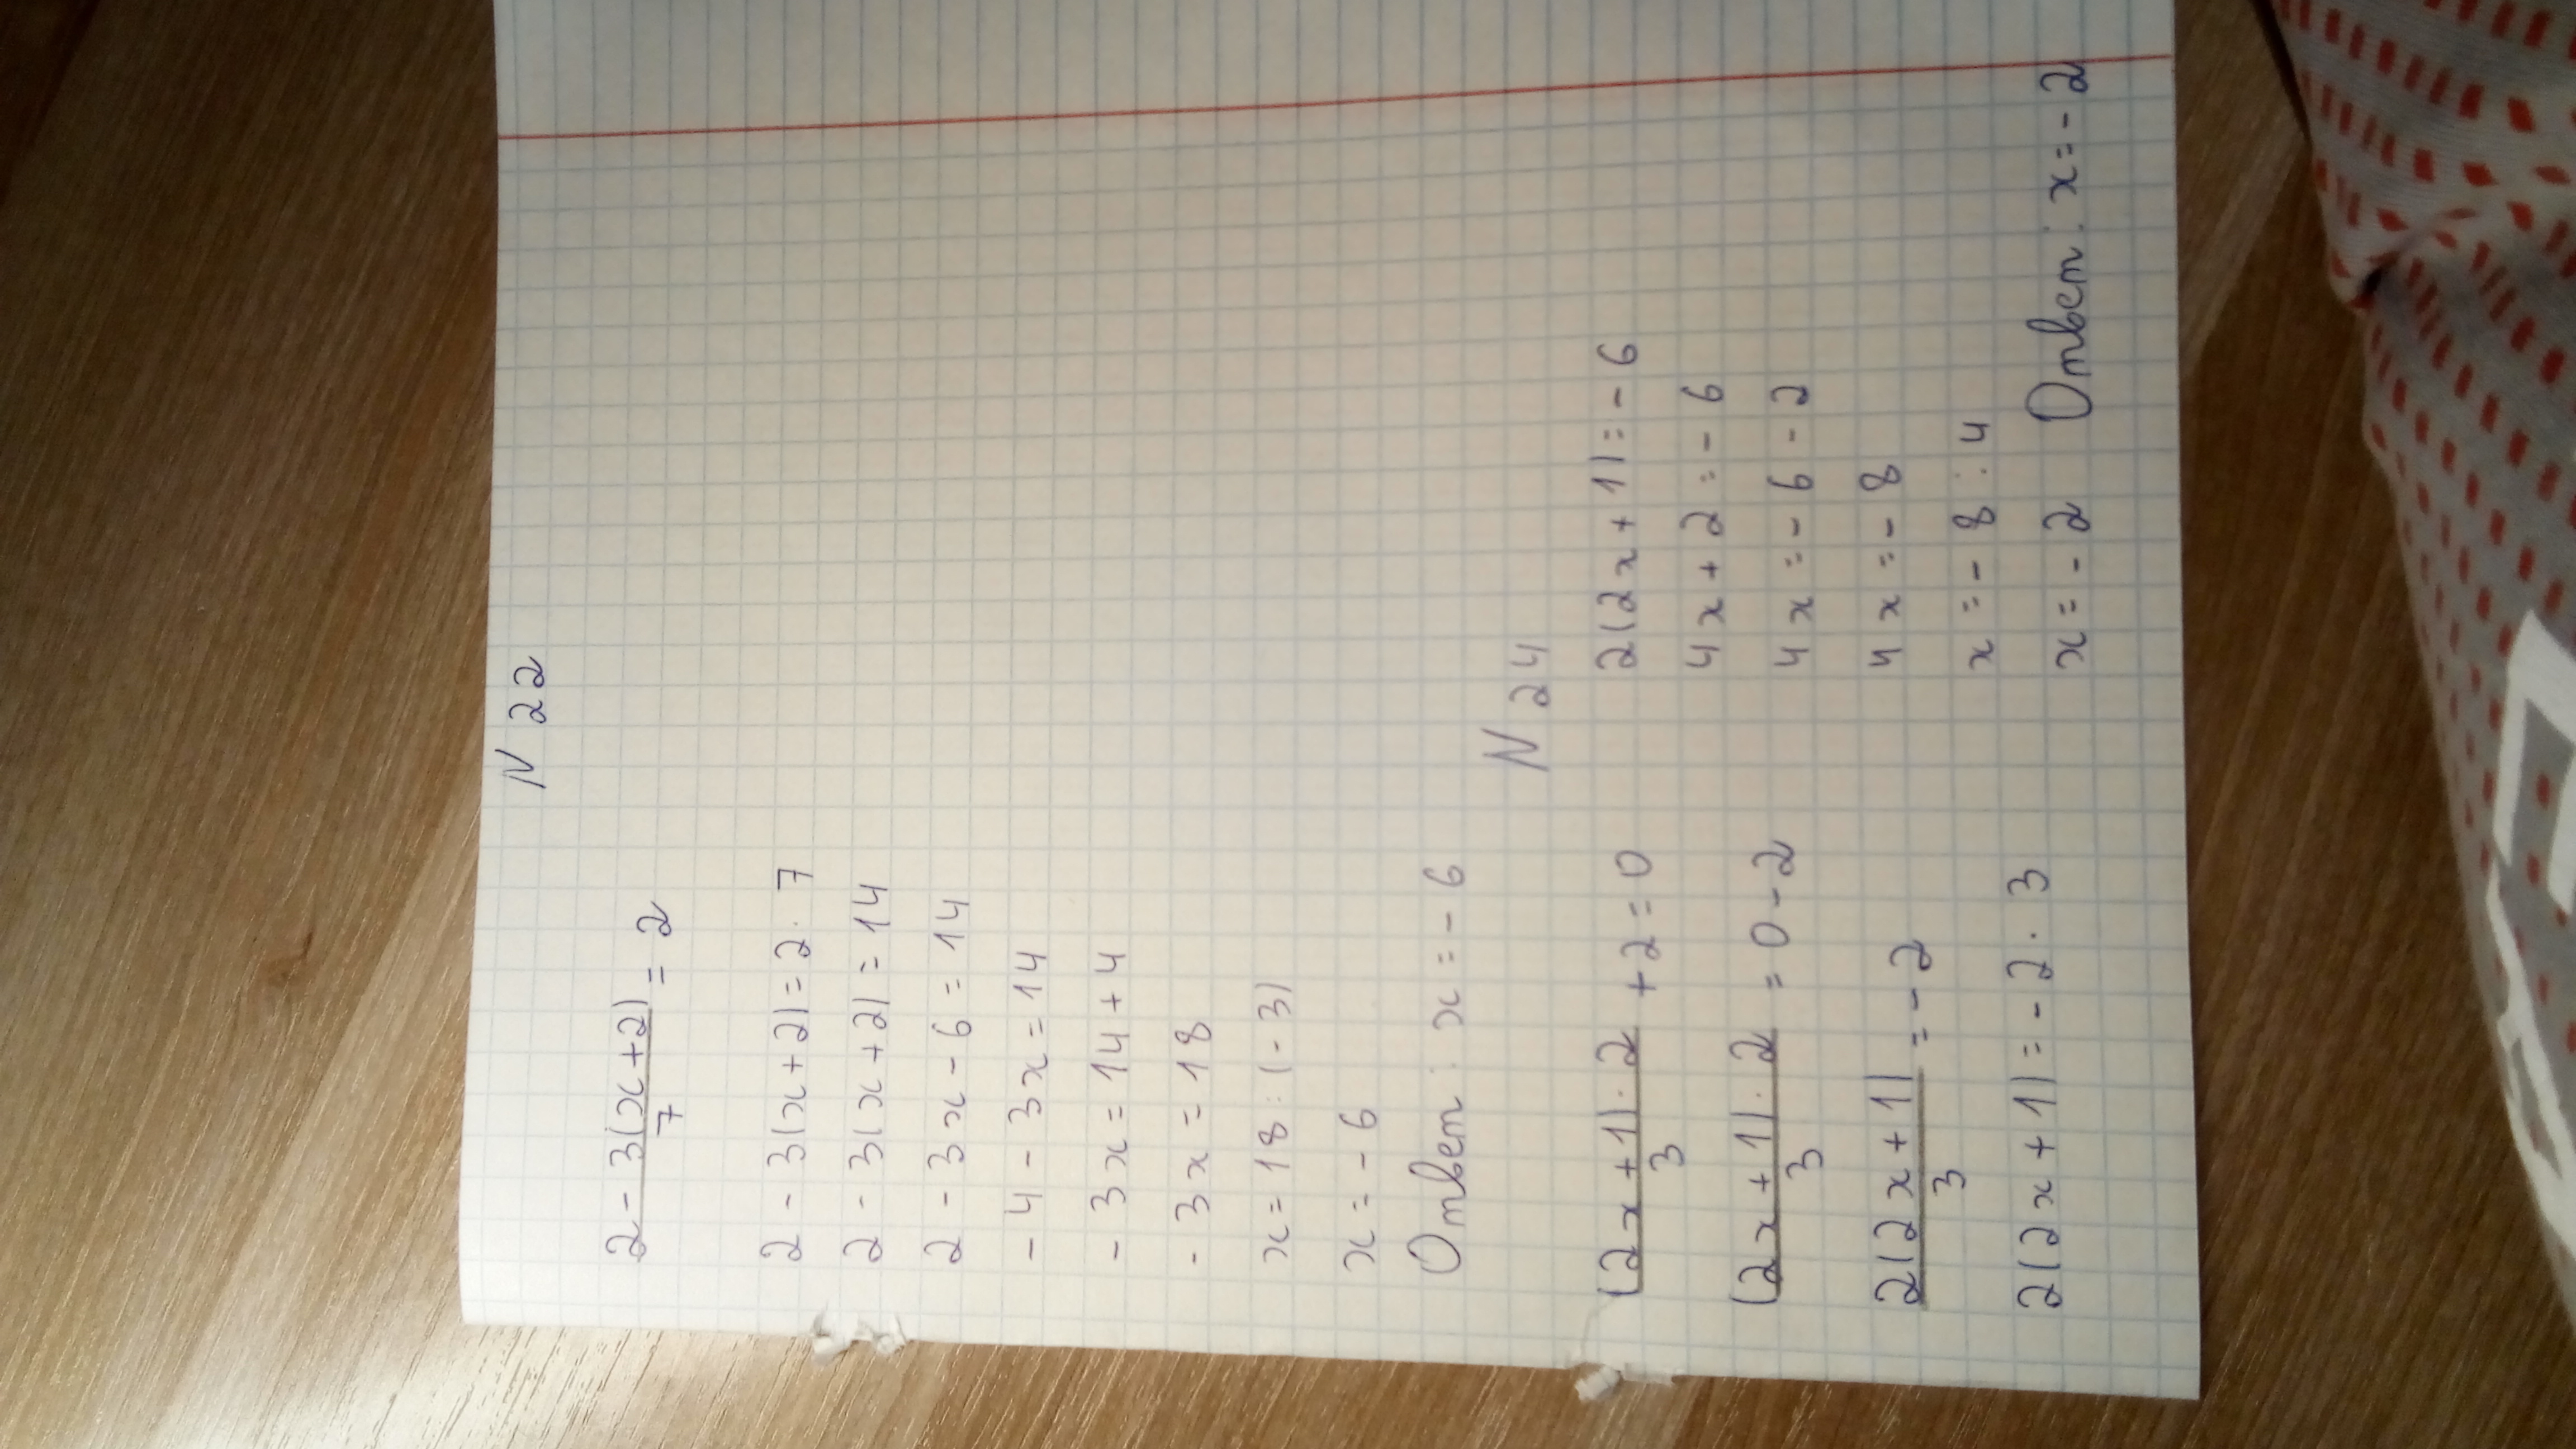 N 22
2 - 3(x+2) / 7 = 2
2 - 3(x+2) = 2 · 7
2 - 3(x+2) = 14
2 - 3x - 6 = 14
- 4 - 3x = 14
- 3x = 14 + 4
- 3x = 18
x = 18 : (-3)
x = - 6
Ответ : x = - 6
N 24
(2x+1) · 2 / 3 + 2 = 0
(2x+1) · 2 / 3 = 0 - 2
2(2x+1) / 3 = - 2
2(2x+1) = - 2 · 3
2(2x+1) = - 6
4x + 2 = - 6
4x = - 6 - 2
4x = - 8
x = - 8 : 4
x = - 2 Ответ : x = - 2